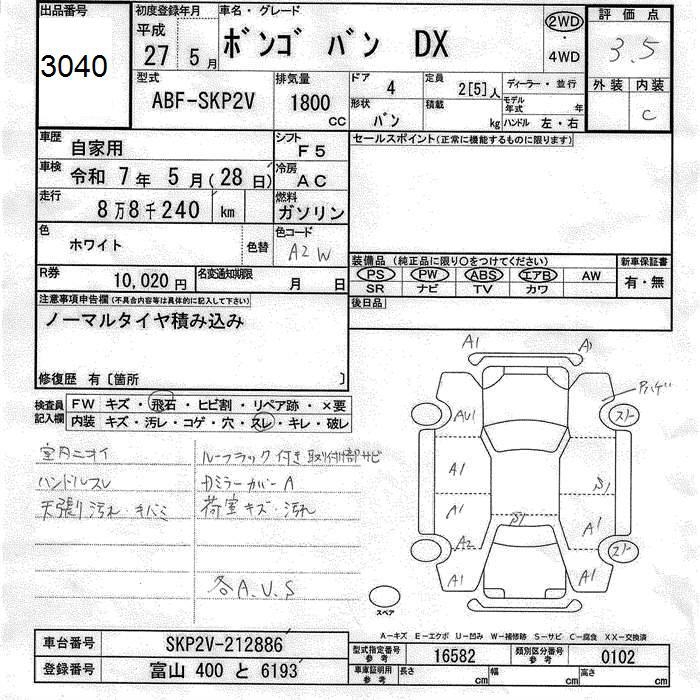 出品番号
3040
初度登録年月
平成
27 5月
車名・グレード
ボンゴ バン DX
2WD
・
4WD
評価点
3.5
外装 内装
C
型式
ABF-SKP2V
排気量
1800
CC
ドア
4
定員
2[5]人
ディーラー・並行
形状
バン
積載
kg
モデル年式 年
ハンドル 左・右
車歴
自家用
シフト
F5
セールスポイント(正常に機能するものに限ります)
車検
令和 7年 5月(28日)
冷房
AC
走行
8万8千240 km
燃料
ガソリン
色
ホワイト
色替
色コード
A2W
装備品 (純正品に限り○をつけてください)
新車保証書
PS PW ABS エアB AW
有・無
SR ナビ TV カワ
R券
10,020円
名変通知期限
月 日
後日品
注意事項申告欄(不具合内容等は具体的に記入して下さい)
ノーマルタイヤ積み込み
修復歴 有〔箇所 〕
検査員記入欄
FW キズ・飛石・ヒビ割・リペア跡・×要
内装 キズ・汚レ・コゲ・穴・スレ・キレ・破レ
室内ニオイ
ルーフラック付き取付部サビ
ハンドルスレ
Dミラーカバー A
天張り汚れ・キバミ
荷室キズ・汚れ
各A.U.S
A1
A1
Pハゲ
AU1
スト
A1
S1
A1
S1
A1
A2
スト
A1
A1
スペア
A-キズ E-エクボ U-凹み W-補修跡 S-サビ C-腐食 XX-交換済
車台番号
SKP2V-212886
型式指定番号
参考
16582
類別区分番号
参考
0102
登録番号
富山 400 と 6193
車庫証明用
参考
長さ cm
幅 cm
高さ cm